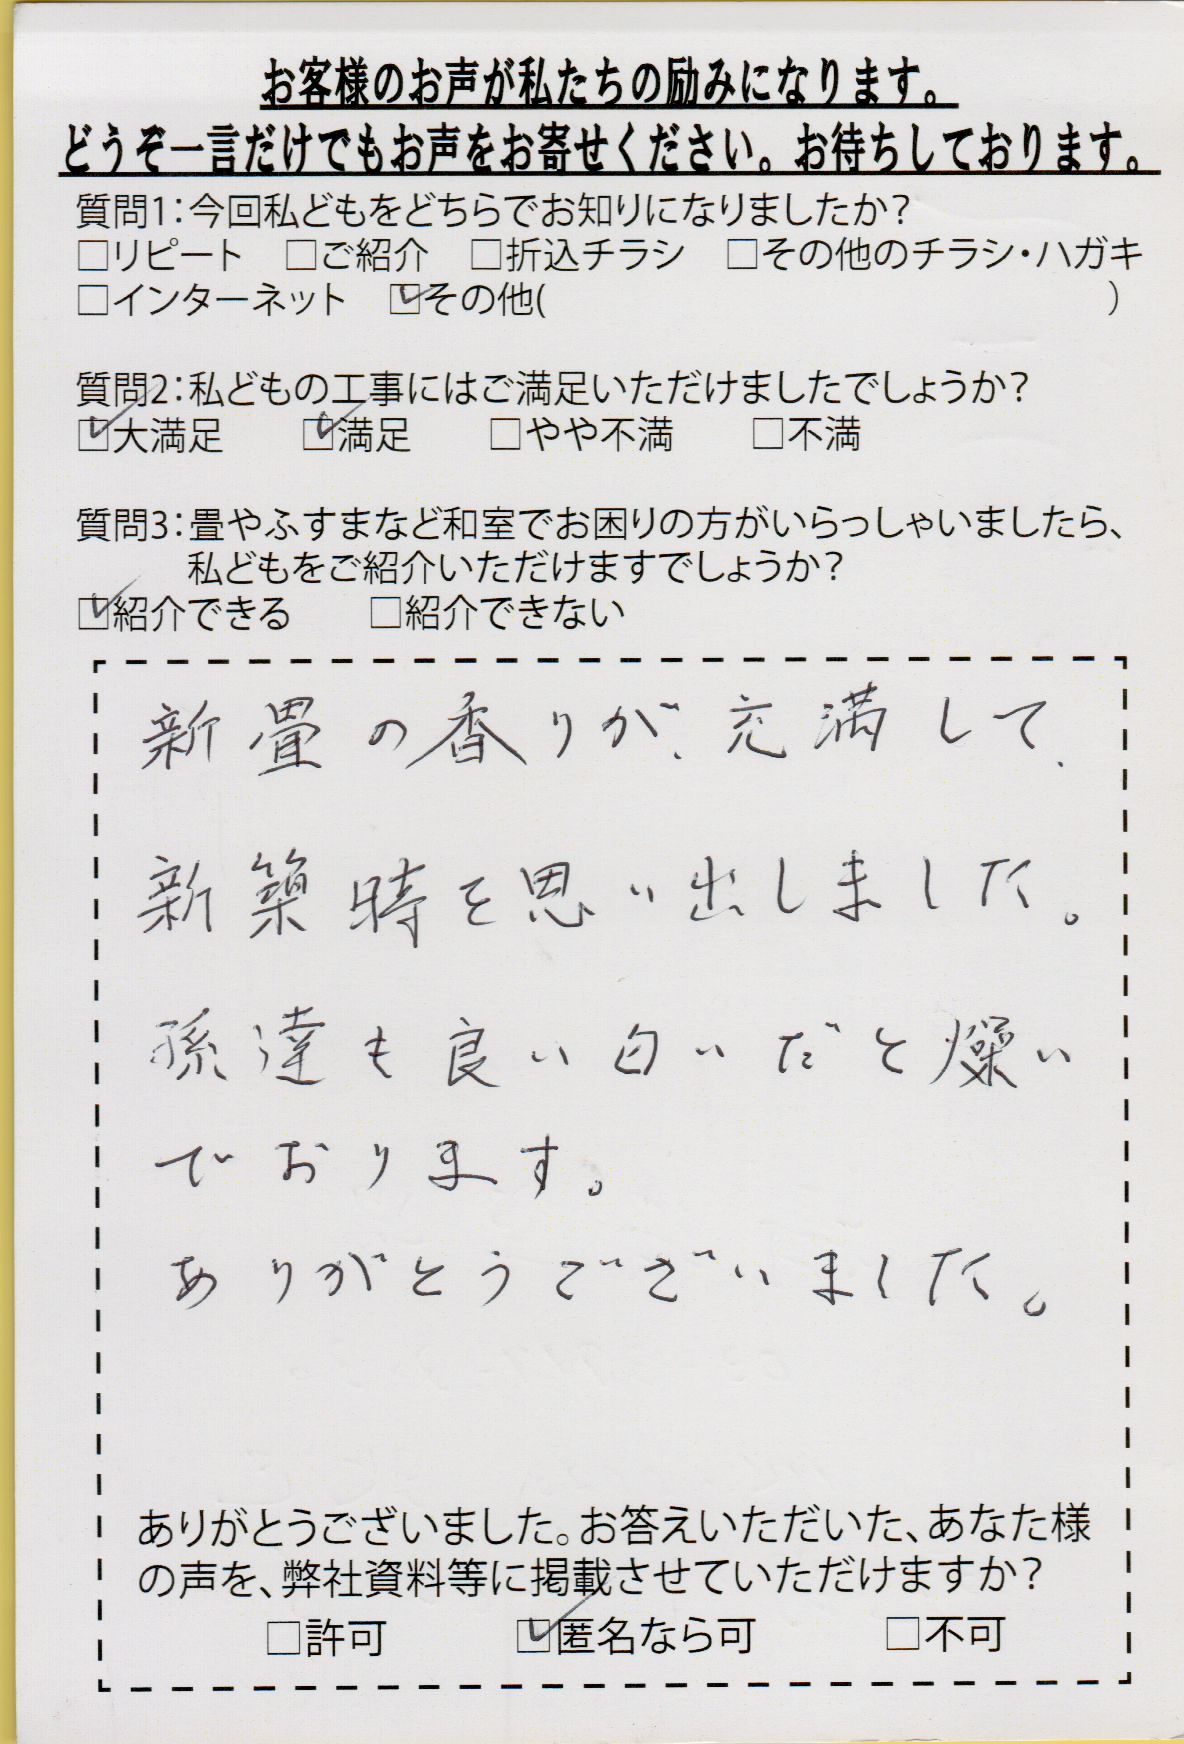 お客様のお声が私たちの励みになります。
どうぞ一言だけでもお声をお寄せください。お待ちしております。
質問1：今回私どもをどちらでお知りになりましたか？
□リピート □ご紹介 □折込チラシ □その他のチラシ・ハガキ
□インターネット ☑その他( )
質問2：私どもの工事にはご満足いただけましたでしょうか？
☑大満足 ☑満足 □やや不満 □不満
質問3：畳やふすまなど和室でお困りの方がいらっしゃいましたら、
私どもをご紹介いただけますでしょうか？
☑紹介できる □紹介できない
新畳の香りが、充満して、
新築時を思い出しました。
孫達も良い匂いだと燥い
でおります。
ありがとうございました。
ありがとうございました。お答えいただいた、あなた様
の声を、弊社資料等に掲載させていただけますか？
□許可 ☑匿名なら可 □不可